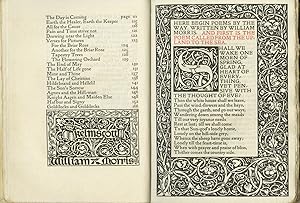 The Day is Coming page 111
Earth the Healer, Earth the Keeper
All for the Cause
Pain and Time strive not
Drawing near the Light
Verses for Pictures
For the Briar Rose
Another for the Briar Rose
Tapestry Trees
The Flowering Orchard
The End of May
The Half of Life gone
Mine and Thine
The Lay of Christine
Hildebrand and Hellelil
The Son's Sorrow
Agnes and the Hill-man
Knight Aagen and Maiden Else
Hafbur and Signy
Goldilocks and Goldilocks
Kelmscott
William Morris
HERE BEGIN POEMS BY THE
WAY. WRITTEN BY WILLIAM
MORRIS. AND FIRST IS THE
POEM CALLED FROM THE UP
LAND TO THE SEA.
SHALL WE
WAKE ONE
MORN OF
SPRING,
GLAD AT
HEART OF
EVERY-
THING,
YET PEN-
SIVE WITH
THE THOUGHT OF EVE?
Then the white house shall we leave,
Pass the wind-flowers and the bays,
Through the garth, and go our ways,
Wandering down among the meads
Till our very joyance needs
Rest at last; till we shall come
To that Sun-god's lonely home,
Lonely on the hill-side grey,
Whence the sheep have gone away;
Lonely till the feast-time is,
When with prayer and praise of bliss,
Thither comes the country side.